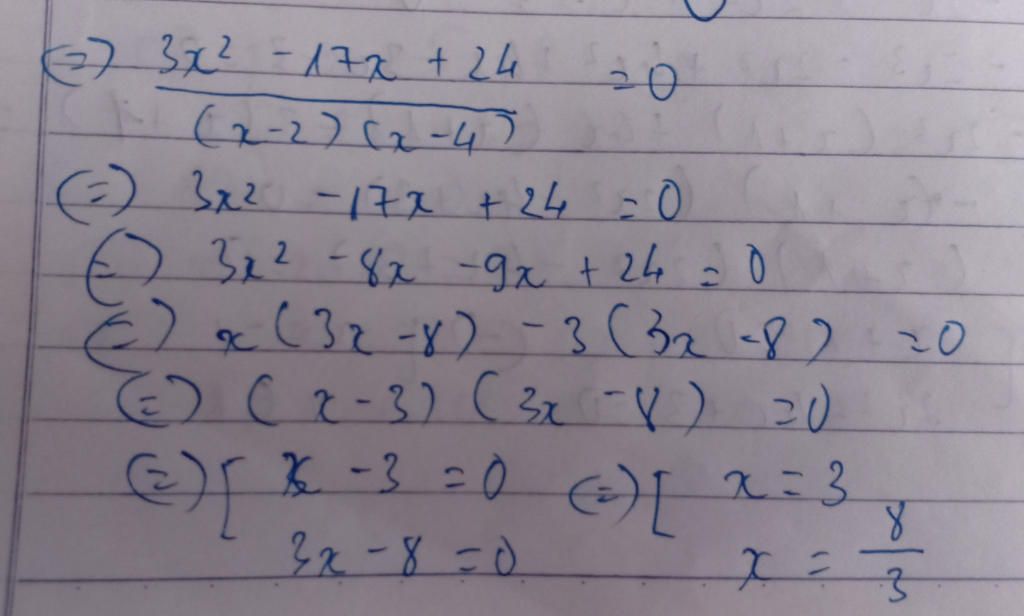 (=) 3x² - 17x + 24 / (x-2)(x-4) = 0
(=) 3x² - 17x + 24 = 0
(=) 3x² - 8x - 9x + 24 = 0
(=) x(3x - 8) - 3(3x - 8) = 0
(=) (x - 3)(3x - 8) = 0
(=) [ x - 3 = 0 (=) [ x = 3
3x - 8 = 0 x = 8/3